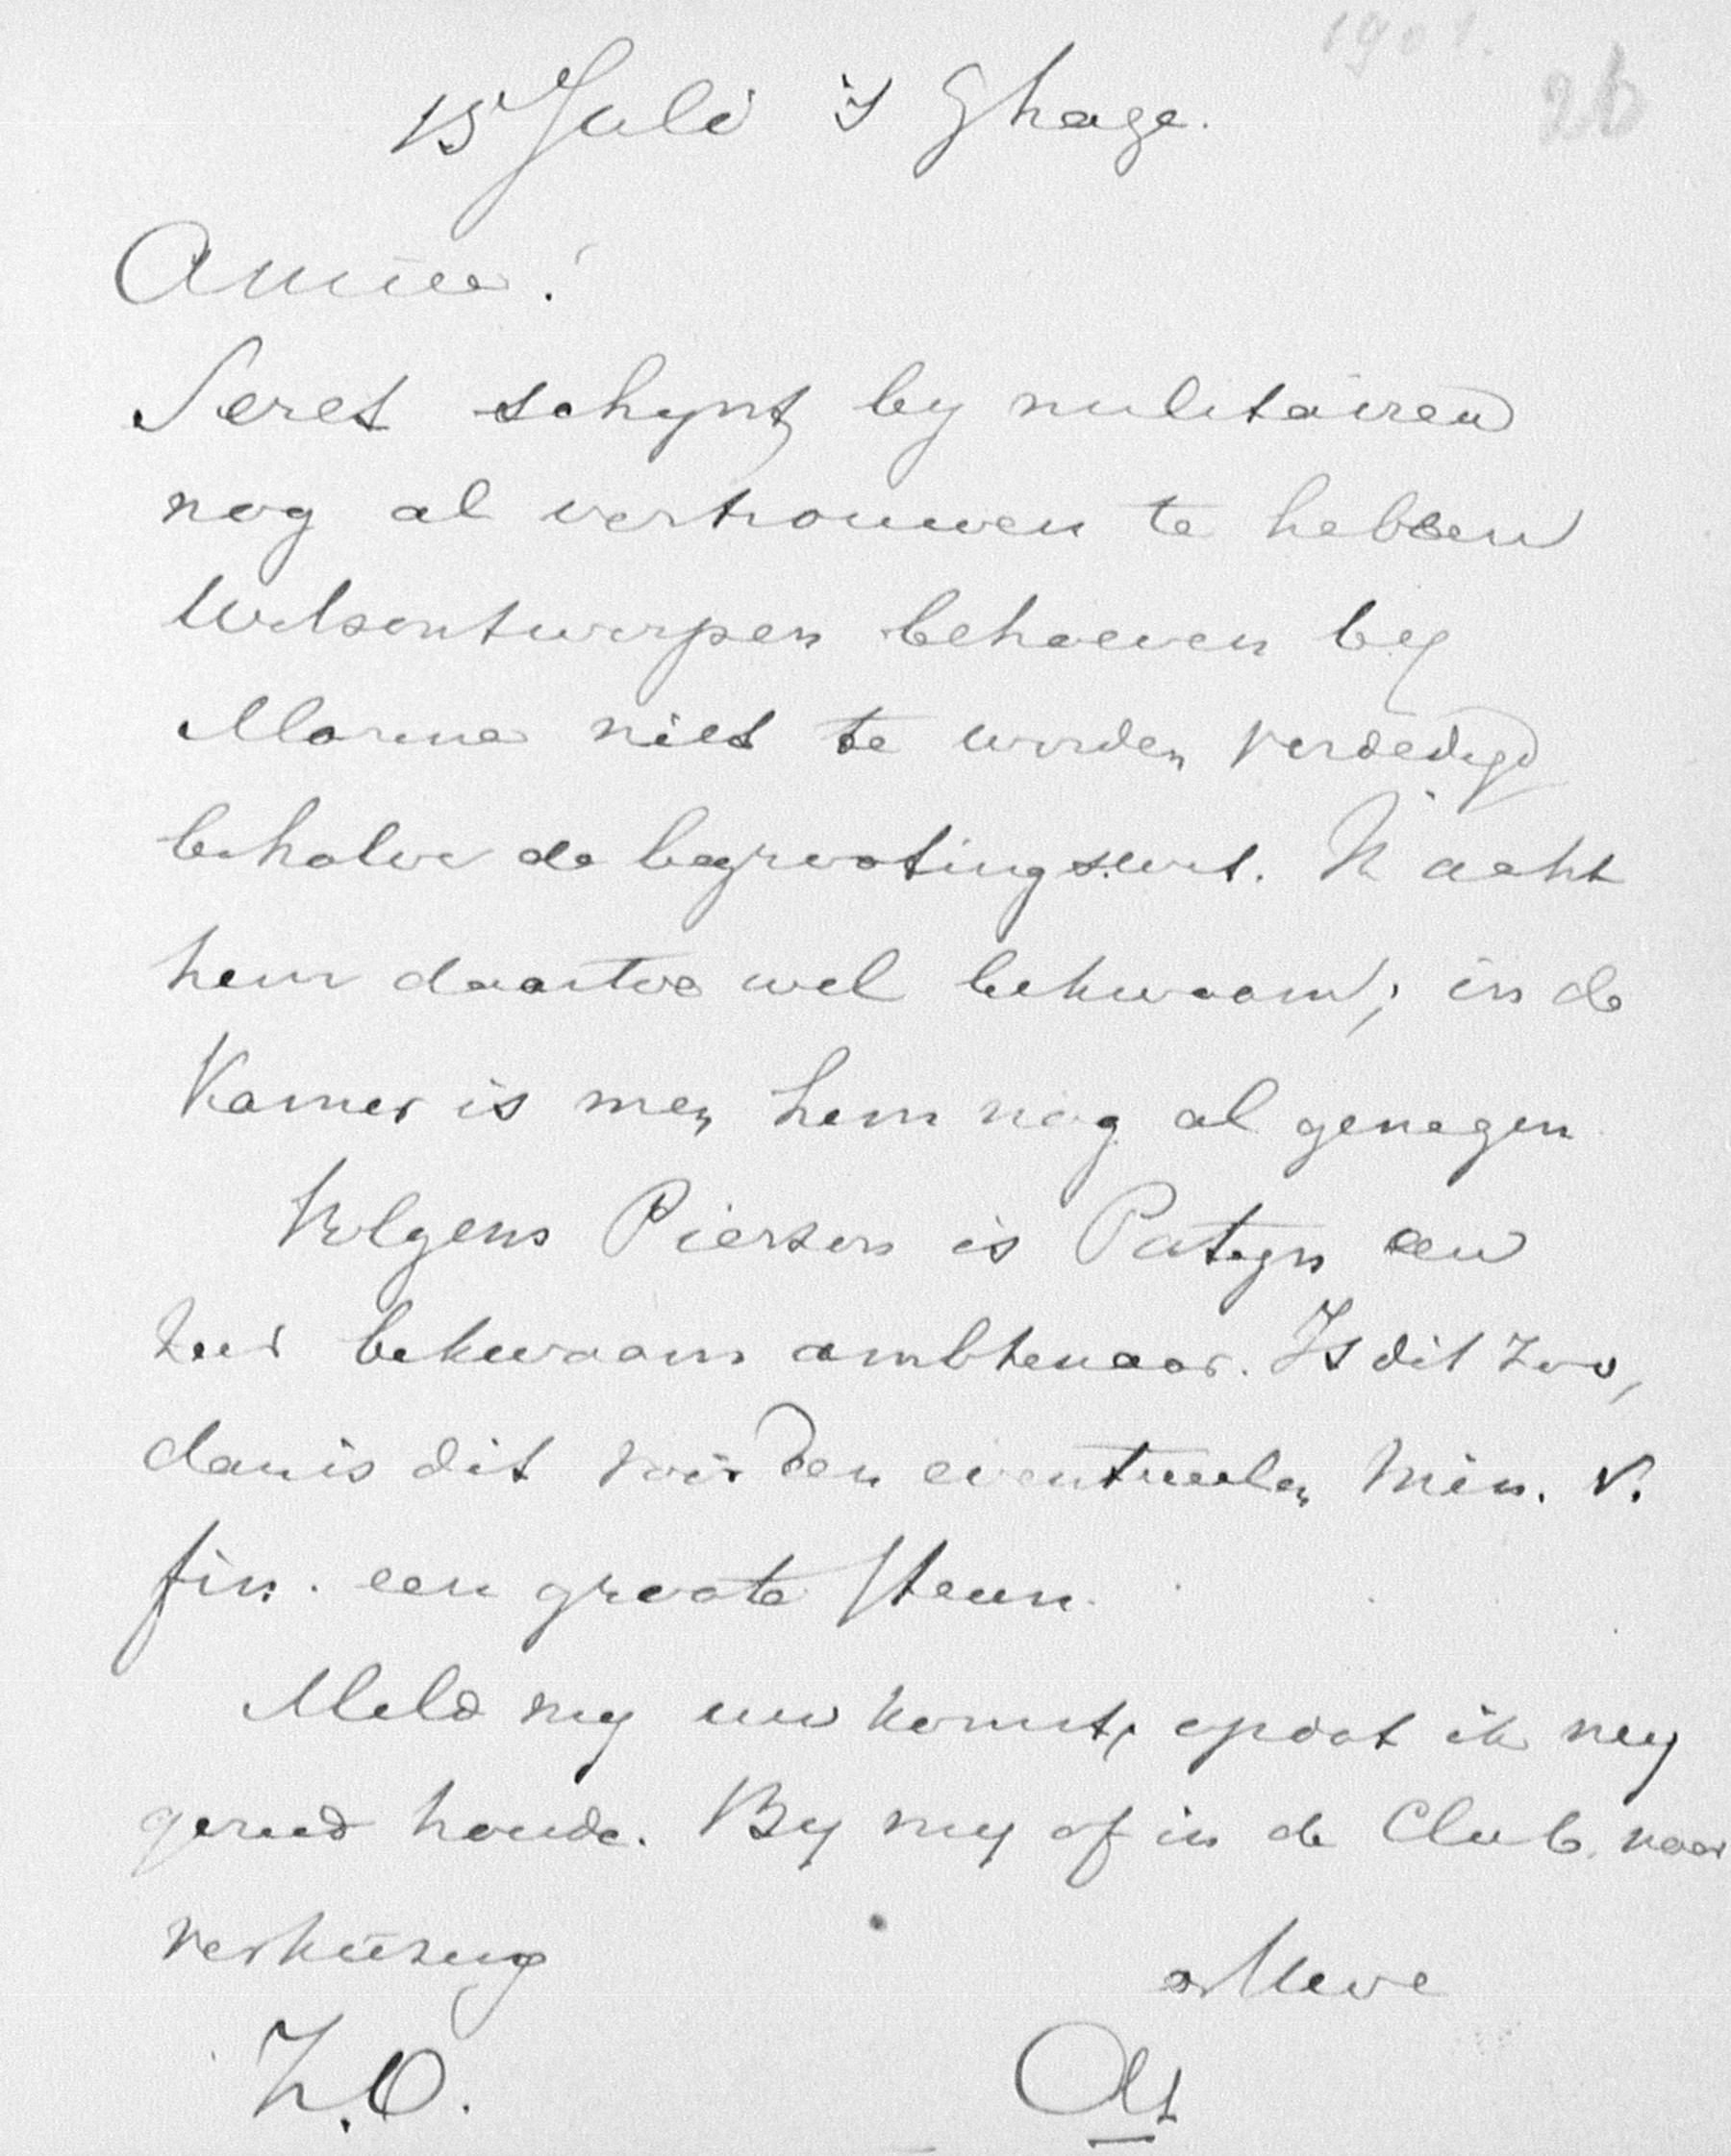 1901.
26
15 Juli 's Ghage.
Amice!
Seret schynt by militairen
nog al vertrouwen te hebben
Wetsontwerpen behoeven by
Marine niet te worden verdedigd
behalve de begrootingswet. Ik acht
hem daartoe wel bekwaam; in de
Kamer is men hem nog al genegen
Volgens Pierson is Patyn een
zeer bekwaam ambtenaar. Is dit zoo,
dan is dit voor den eventueelen Min. v.
fin. een groote steun.
Meld my uw komst, opdat ik my
gereed houde. By my of in de Club naar
verkiezing
t.t.